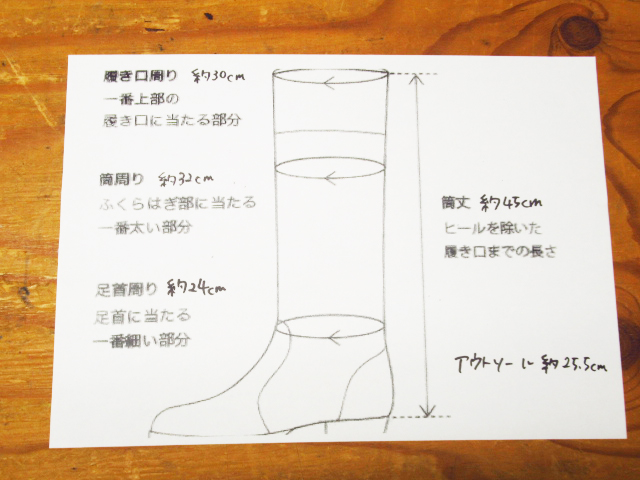 履き口周り 約30cm
一番上部の
履き口に当たる部分
筒周り 約32cm
ふくらはぎ部に当たる
一番太い部分
足首周り 約24cm
足首に当たる
一番細い部分
筒丈 約45cm
ヒールを除いた
履き口までの長さ
アウトソール約25.5cm